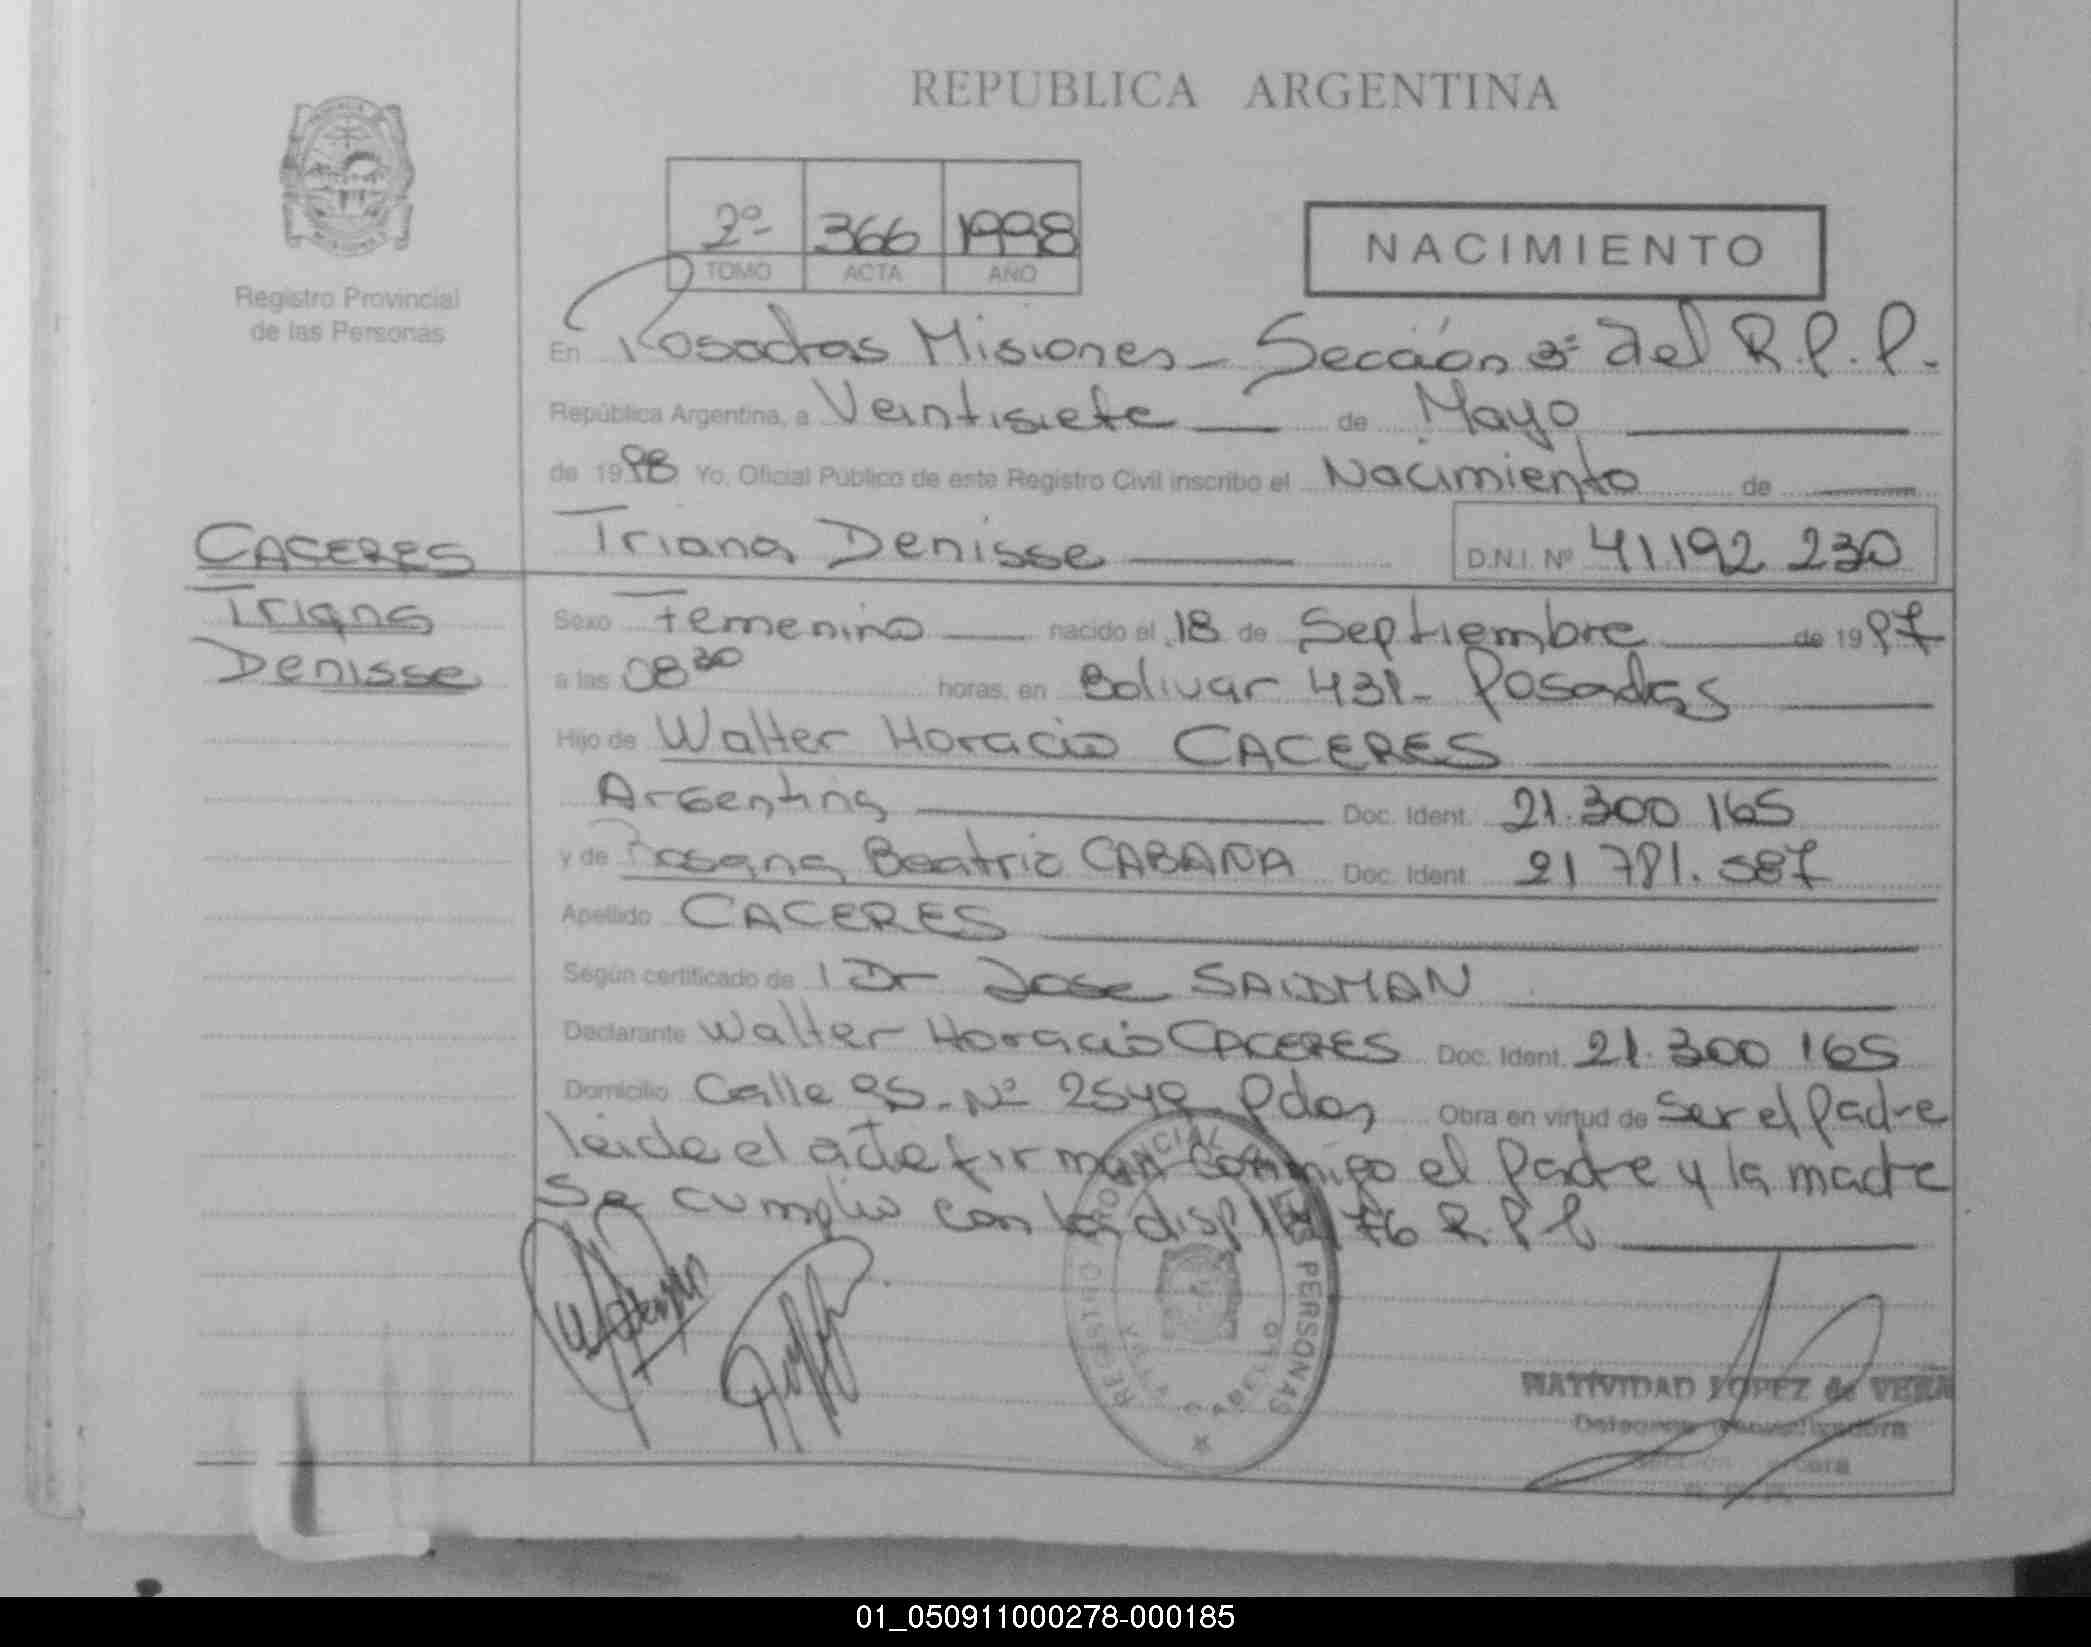 REPUBLICA ARGENTINA
2º 366 1998
TOMO ACTA AÑO
NACIMIENTO
Registro Provincial
de las Personas
En Posadas Misiones - Sección 3ª del R.P.P.
República Argentina, a Veintisiete de Mayo
de 1998 Yo, Oficial Público de este Registro Civil inscribo el Nacimiento de
Triana Denisse D.N.I. Nº 41.192 230
CACERES
Triana
Denisse
Sexo Femenino nacido el 18 de Septiembre de 1997
a las 08 30 horas, en Bolivar 431- Posadas
Hijo de Walter Horacio CACERES
Argentina Doc. Ident. 21.300 165
y de Rosana Beatriz CABAÑA Doc. Ident. 21 781.587
Apellido CACERES
Según certificado de Dr Jose SAIDMAN
Declarante Walter Horacio CACERES Doc. Ident. 21.300 165
Domicilio Calle 95-Nº 2549 Pdas Obra en virtud de Ser el Padre
leida el acta firman conmigo el Padre y la madre
Se cumplio con la disp 76 R.P.P.
REGISTRO PROVINCIAL PERSONAS
NATIVIDAD LOPEZ de VERA